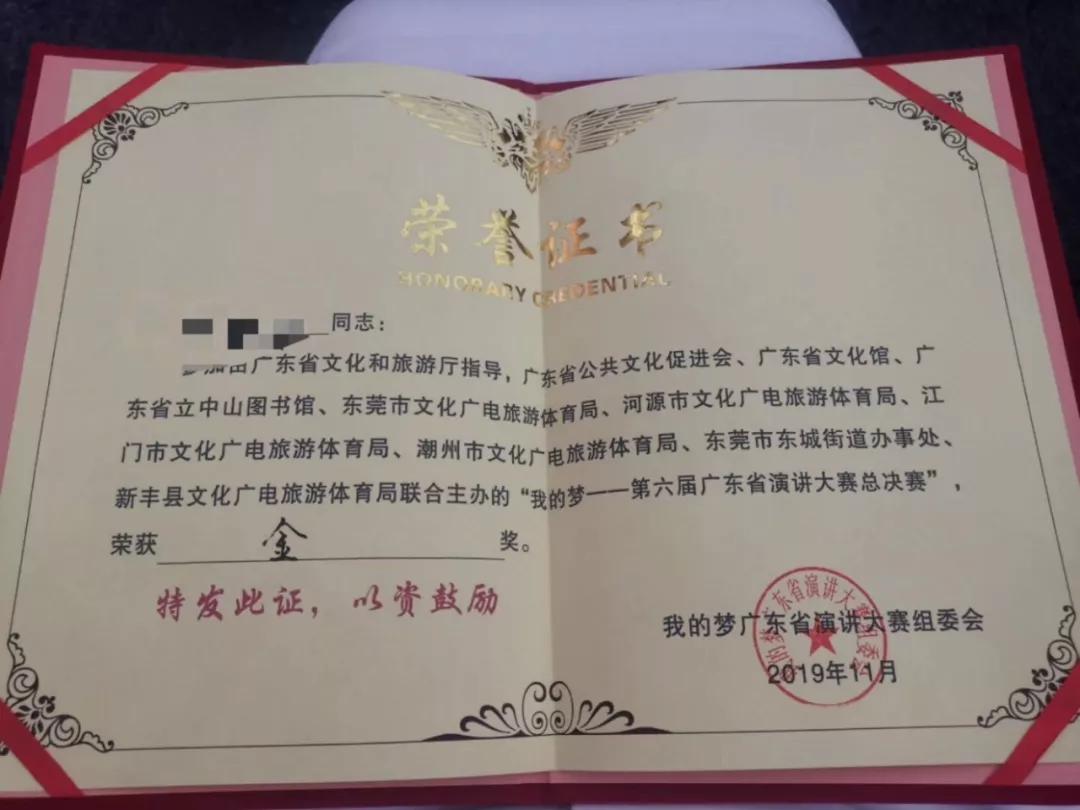 荣誉证书
HONORARY CREDENTIAL
同志：
参加由广东省文化和旅游厅指导，广东省公共文化促进会、广东省文化馆、广
东省立中山图书馆、东莞市文化广电旅游体育局、河源市文化广电旅游体育局、江
门市文化广电旅游体育局、潮州市文化广电旅游体育局、东莞市东城街道办事处、
新丰县文化广电旅游体育局联合主办的“我的梦——第六届广东省演讲大赛总决赛”，
荣获 金 奖。
特发此证，以资鼓励
我的梦广东省演讲大赛组委会
2019年11月
我的梦广东省演讲大赛组委会